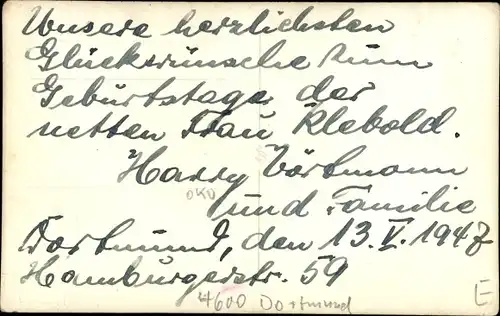 Unsere herzlichsten
Glückwünsche zum
Geburtstage der
netten Frau Klebold.
Harry Vörtmann
OKD
und Familie
Dortmund, den 13.V.1947
Hamburgerstr. 59
4600 Dortmund
E